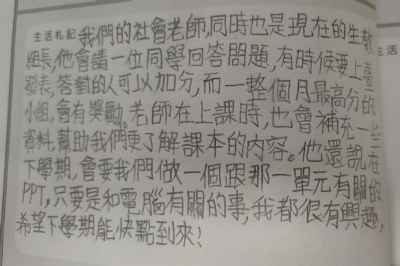 生活札記
我們的社會老師,同時也是現在的生教
組長,他會請一位同學回答問題,有時候要上臺
發表,答對的人可以加分,而一整個月最高分的
小組,會有獎勵。老師在上課時,也會補充一些
資料,幫助我們更了解課本的內容。他還說在
下學期,會要我們做一個跟那一單元有關的
PPT,只要是和電腦有關的事,我都很有興趣,
希望下學期能快點到來!
生活